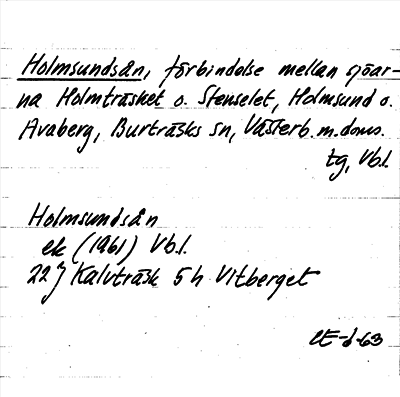 Holmsundsån, förbindelse mellan sjöar-
na Holmträsket o. Stenselet, Holmsund o.
Avaberg, Burträsks sn, Västerb. m. doms.
tg, Vb.l.
Holmsundsån
ek (1961) Vb.l.
22 J Kalvträsk 5 h Vitberget